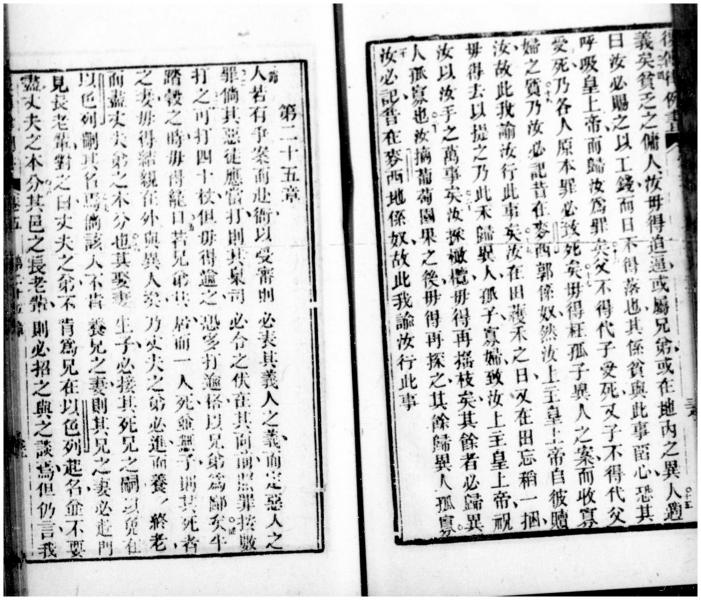 復傳律例書
義矣貧乏之傭人汝毋得迫逼或屬兄弟或在地內之異人遇
曰汝必賜之以工錢而日不得落也其係貧與此事留心恐其
呼吸皇上帝而歸汝爲罪矣父不得代子受死又子不得代父
受死乃各人原本罪必致死矣毋得枉孤子異人之案而收寡
婦之質乃汝必記昔在麥西郭係奴然汝上主皇上帝自彼贖
汝故此我諭汝行此事矣汝在田穫禾之日又在田忘稻一捆
毋得去以提之乃此禾歸異人孤子寡婦致汝上主皇上帝祝
汝以汝手之萬事矣汝探橄欖毋得再搖枝矣其餘者必歸異
人孤寡也汝摘葡萄園果之後毋得再探之其餘歸異人孤寡
汝必記昔在麥西地係奴故此我諭汝行此事
第二十五章
人若有爭案而赴衙以受審則必表其義人之義而定惡人之
罪倘其惡徒應當打則其臬司必令之伏在其面前照罪按數
打之可打四十杖但毋得逾之恐客打逾格以兄弟爲鄙矣牛
踏穀之時毋得籠口若兄弟共居而一人死並無子則其死者
之妻毋得結親在外與異人娶乃丈夫之弟必進而養終老
而盡丈夫弟之本分也其娶妻生子必接其死兄之嗣以免在
以色列嗣其名焉倘該人不肯養兄之妻則其兄之妻必赴門
見長老輩對之曰丈夫之弟不肯爲兄在以色列起名並不要
盡丈夫之本分其邑之長老輩則必招之與之談焉但仍言我